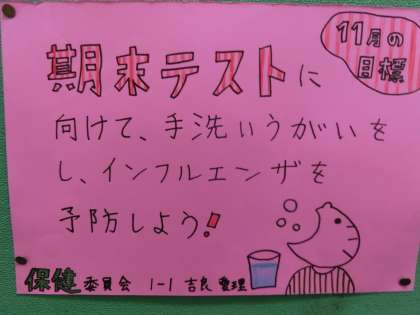 11月の
目標
期末テストに
向けて、手洗いうがいを
し、インフルエンザを
予防しよう!
保健委員会 1-1 吉良 愛理